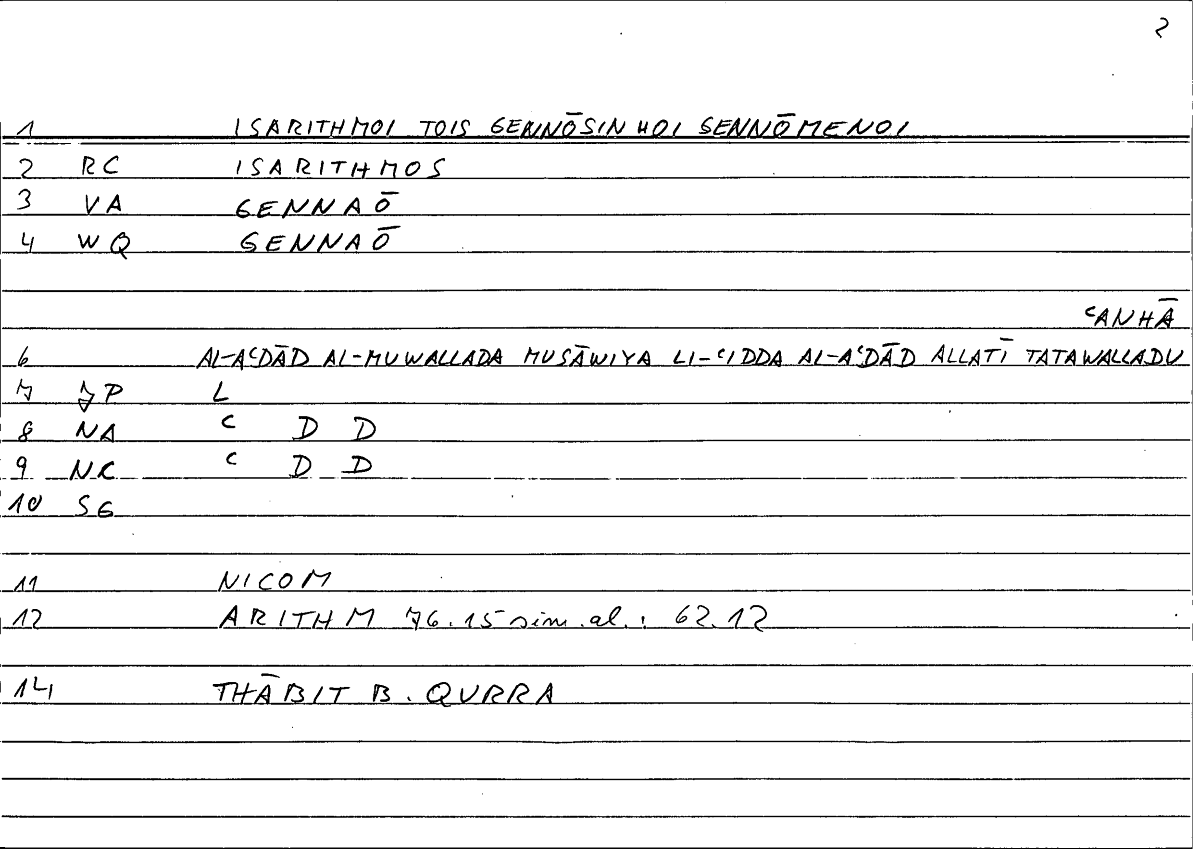 2
1 ISARITHMOI TOIS GENNŌSIN HOI GENNŌMENOI
2 RC ISARITHMOS
3 VA GENNAŌ
4 WQ GENNAŌ
ʿANHĀ
6 AL-AʿDĀD AL-MUWALLADA MUSĀWIYA LI-ʿIDDA AL-AʿDĀD ALLATĪ TATAWALLADU
7 P L
8 NA ʿ D D
9 NK ʿ D D
10 SG
11 NICOM
12 ARITHM 76.15 sim.al.: 62.12
14 THĀBIT B. QURRA